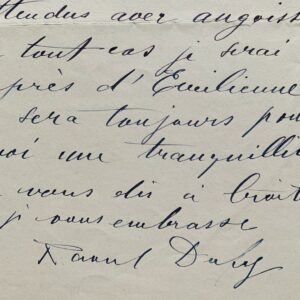 ttendus avec angoiss
tout cas je serai
près d'Emilienne
sera toujours pou
oi une tranquilli
vous dis à bient
je vous embrasse
Raoul Dufy